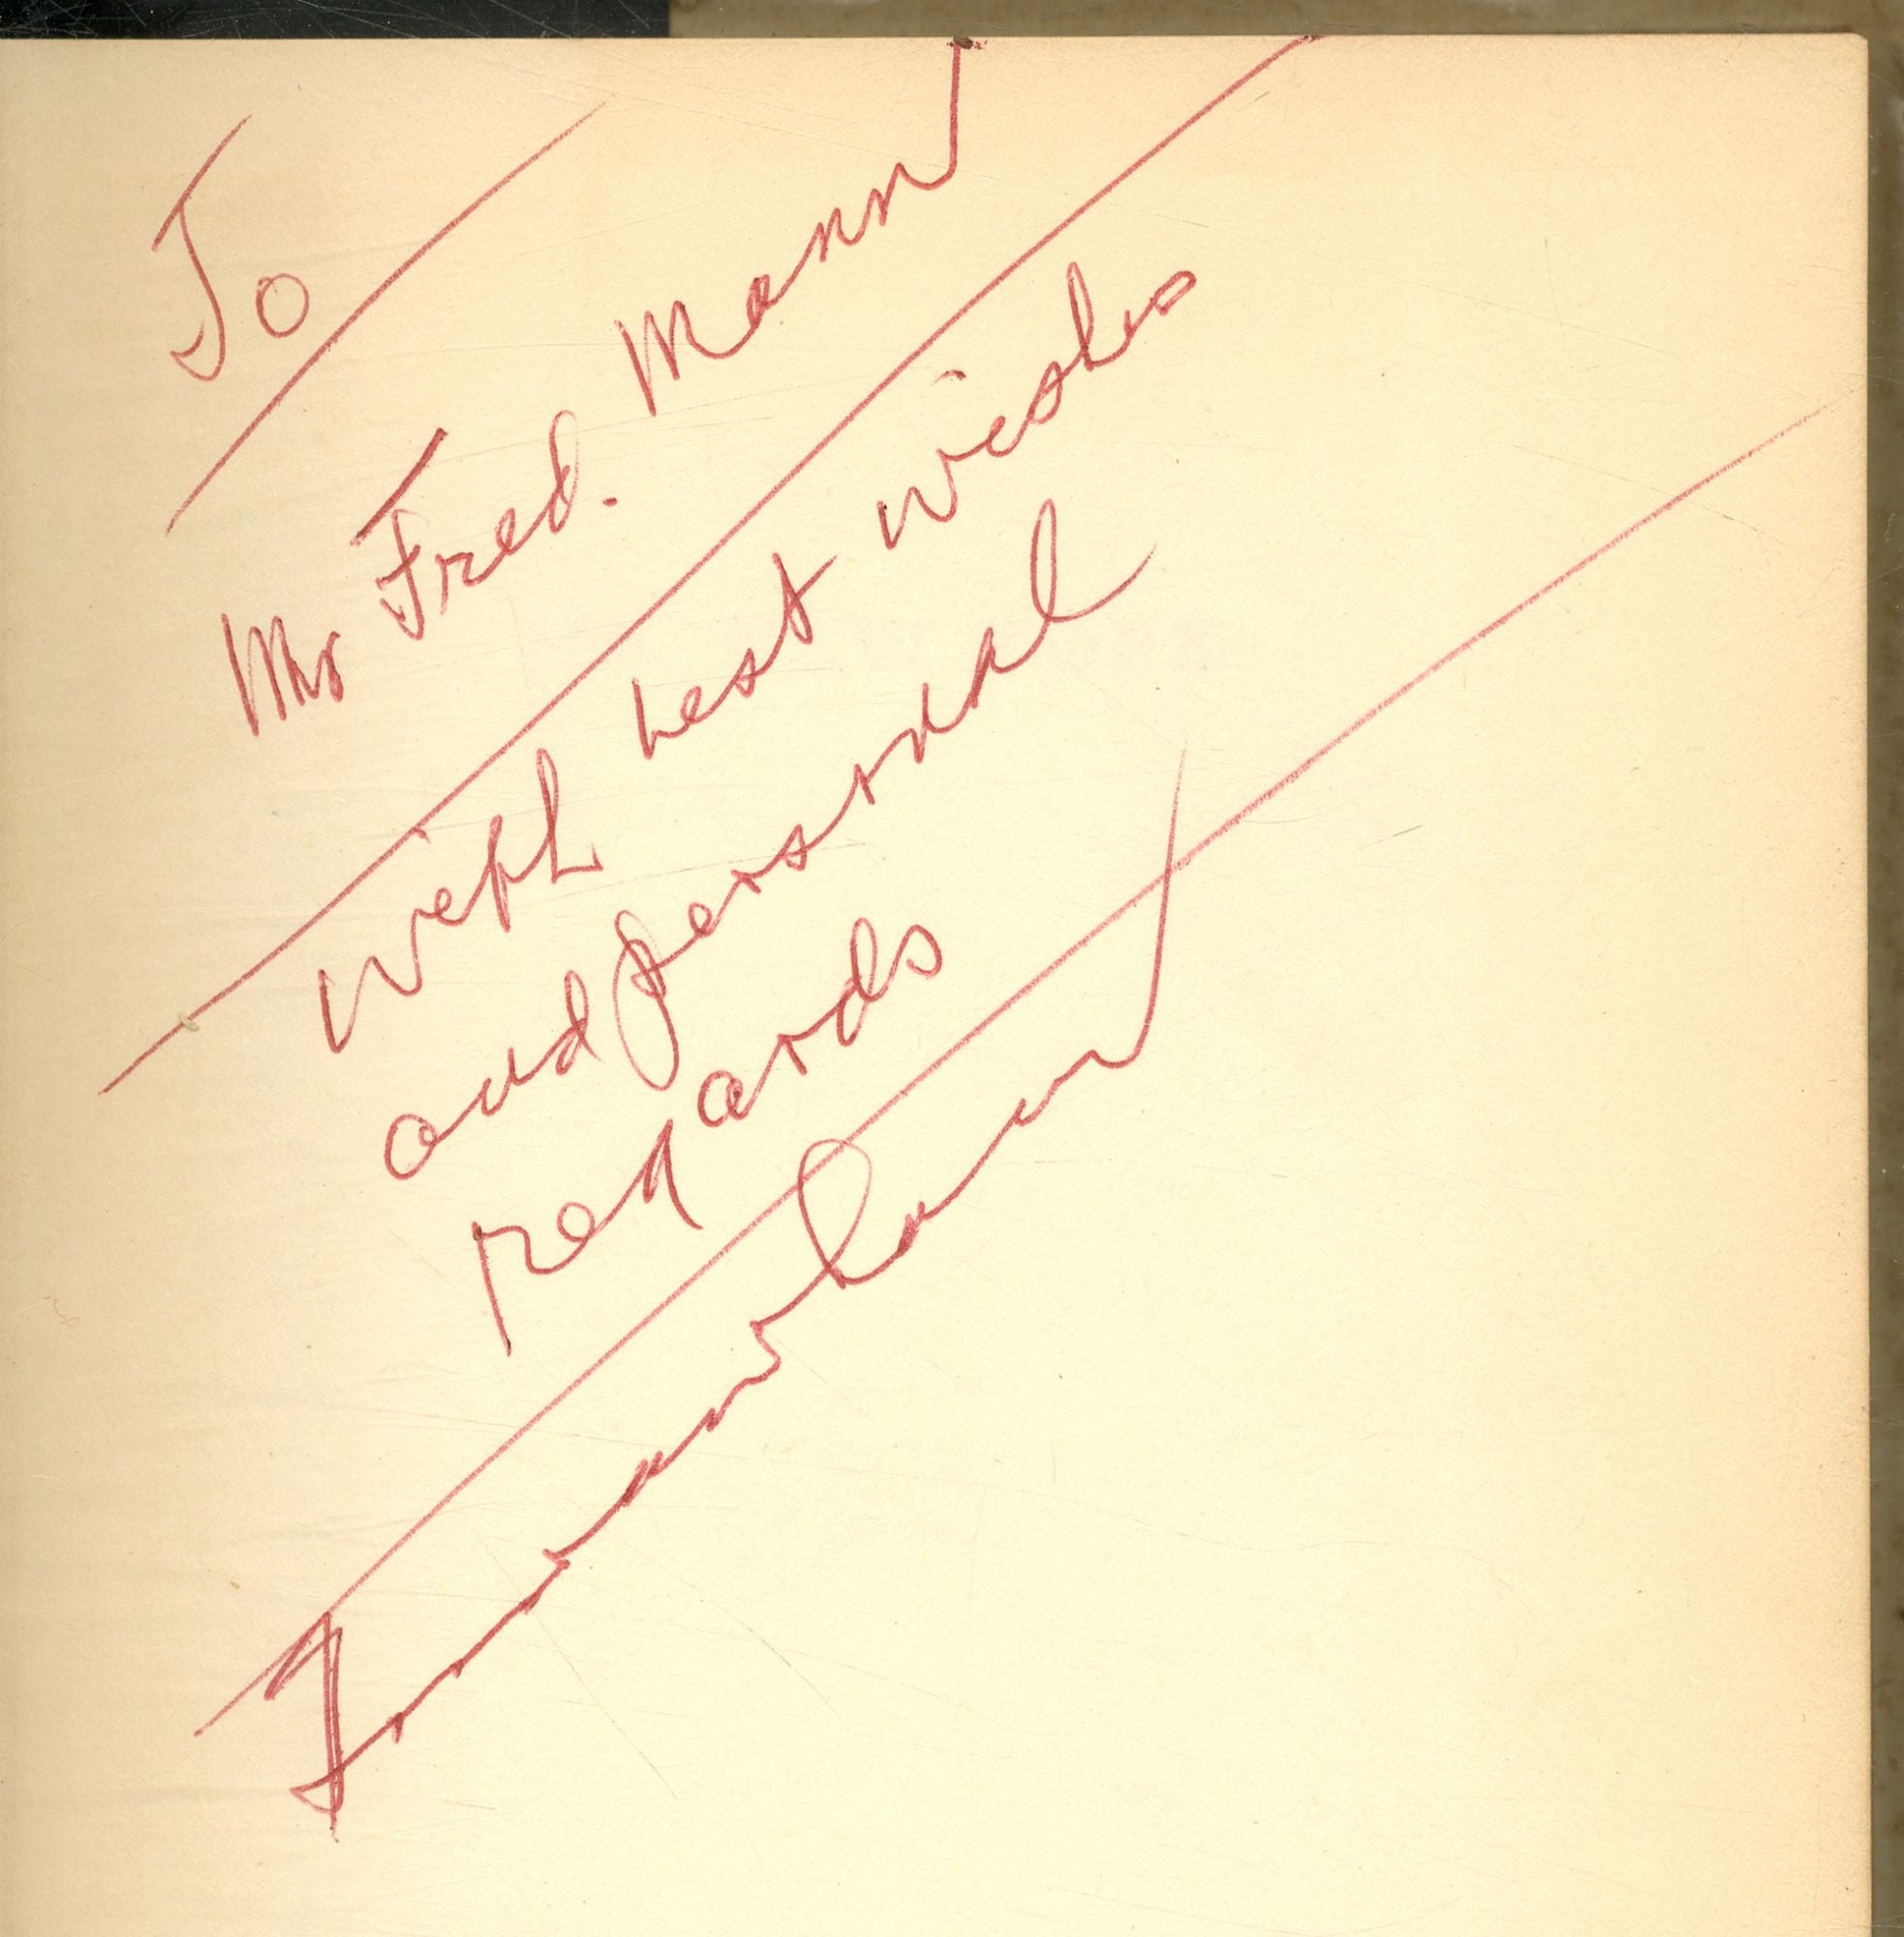 To
Mr Fred. Mann
with best wishes
and personal
regards